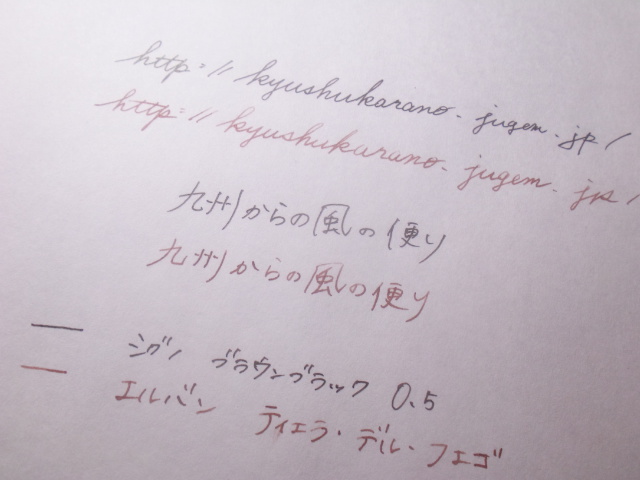 http://kyushukarano.jugem.jp/
http://kyushukarano.jugem.jp/
九州からの風の便り
九州からの風の便り
シグノ ブラウンブラック 0.5
エルバン ティエラ・デル・フエゴ